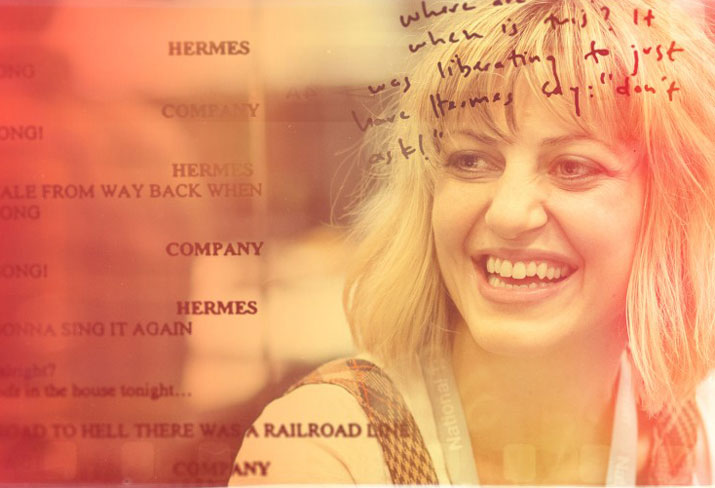 where
when is this? It
was liberating to just
have Hermes say: "don't
ask!"
HERMES
ONG
COMPANY
ONG!
HERMES
ALE FROM WAY BACK WHEN
ONG
COMPANY
ONG!
HERMES
GONNA SING IT AGAIN
alright?
in the house tonight...
ROAD TO HELL THERE WAS A RAILROAD LINE
COMPANY
National